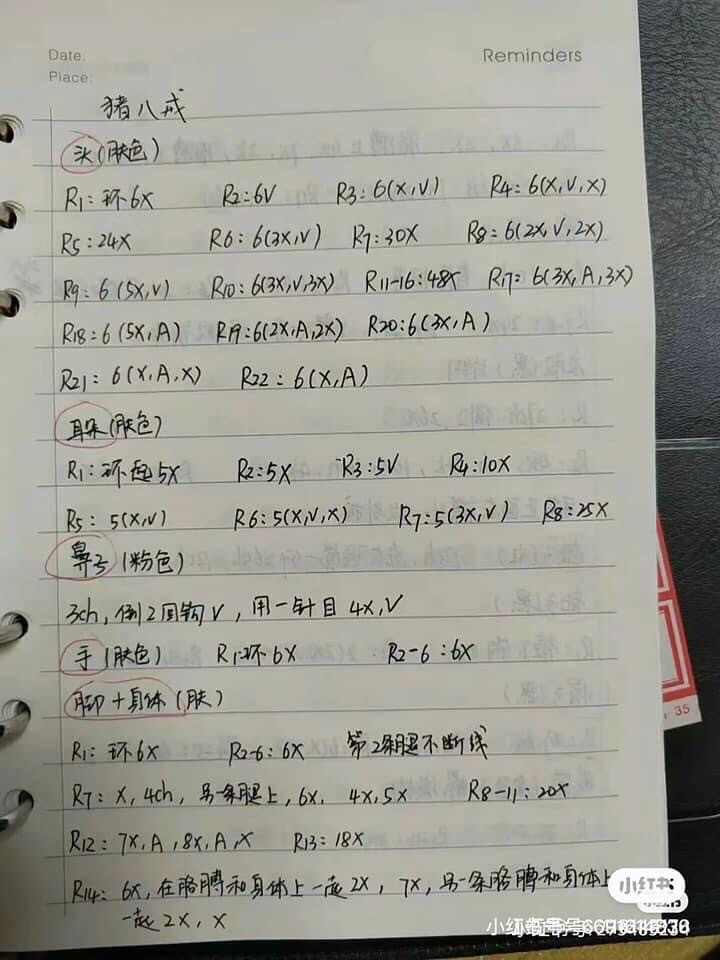 Date:
Reminders
Place:
猪八戒
头(肤色)
R1:环6X R2:6V R3:6(X,V) R4:6(X,V,X)
R5:24X R6:6(3X,V) R7:30X R8:6(2X,V,2X)
R9:6(5X,V) R10:6(3X,V,3X) R11-16:48X R17:6(3X,A,3X)
R18:6(5X,A) R19:6(2X,A,2X) R20:6(3X,A)
R21:6(X,A,X) R22:6(X,A)
耳朵(肤色)
R1:环起5X R2:5X R3:5V R4:10X
R5:5(X,V) R6:5(X,V,X) R7:5(3X,V) R8:25X
鼻子(粉色)
3ch,倒2回钩V,用一针目4X,V
手(肤色) R1:环6X R2-6:6X
脚+身体(肤)
R1:环6X R2-6:6X 第2条腿不断线
R7:X,4ch,另一条腿上,6X,4X,5X R8-11:20X
R12:7X,A,8X,A,X R13:18X
R14:6X,在胳膊和身体上一起2X,7X,另一条胳膊和身体上
一起2X,X
: 35
小红书
小红书号